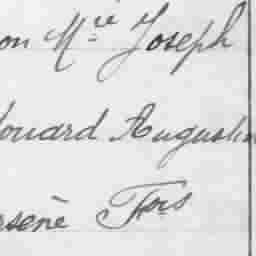 on Mie Joseph
douard Augustin
rsène Fois